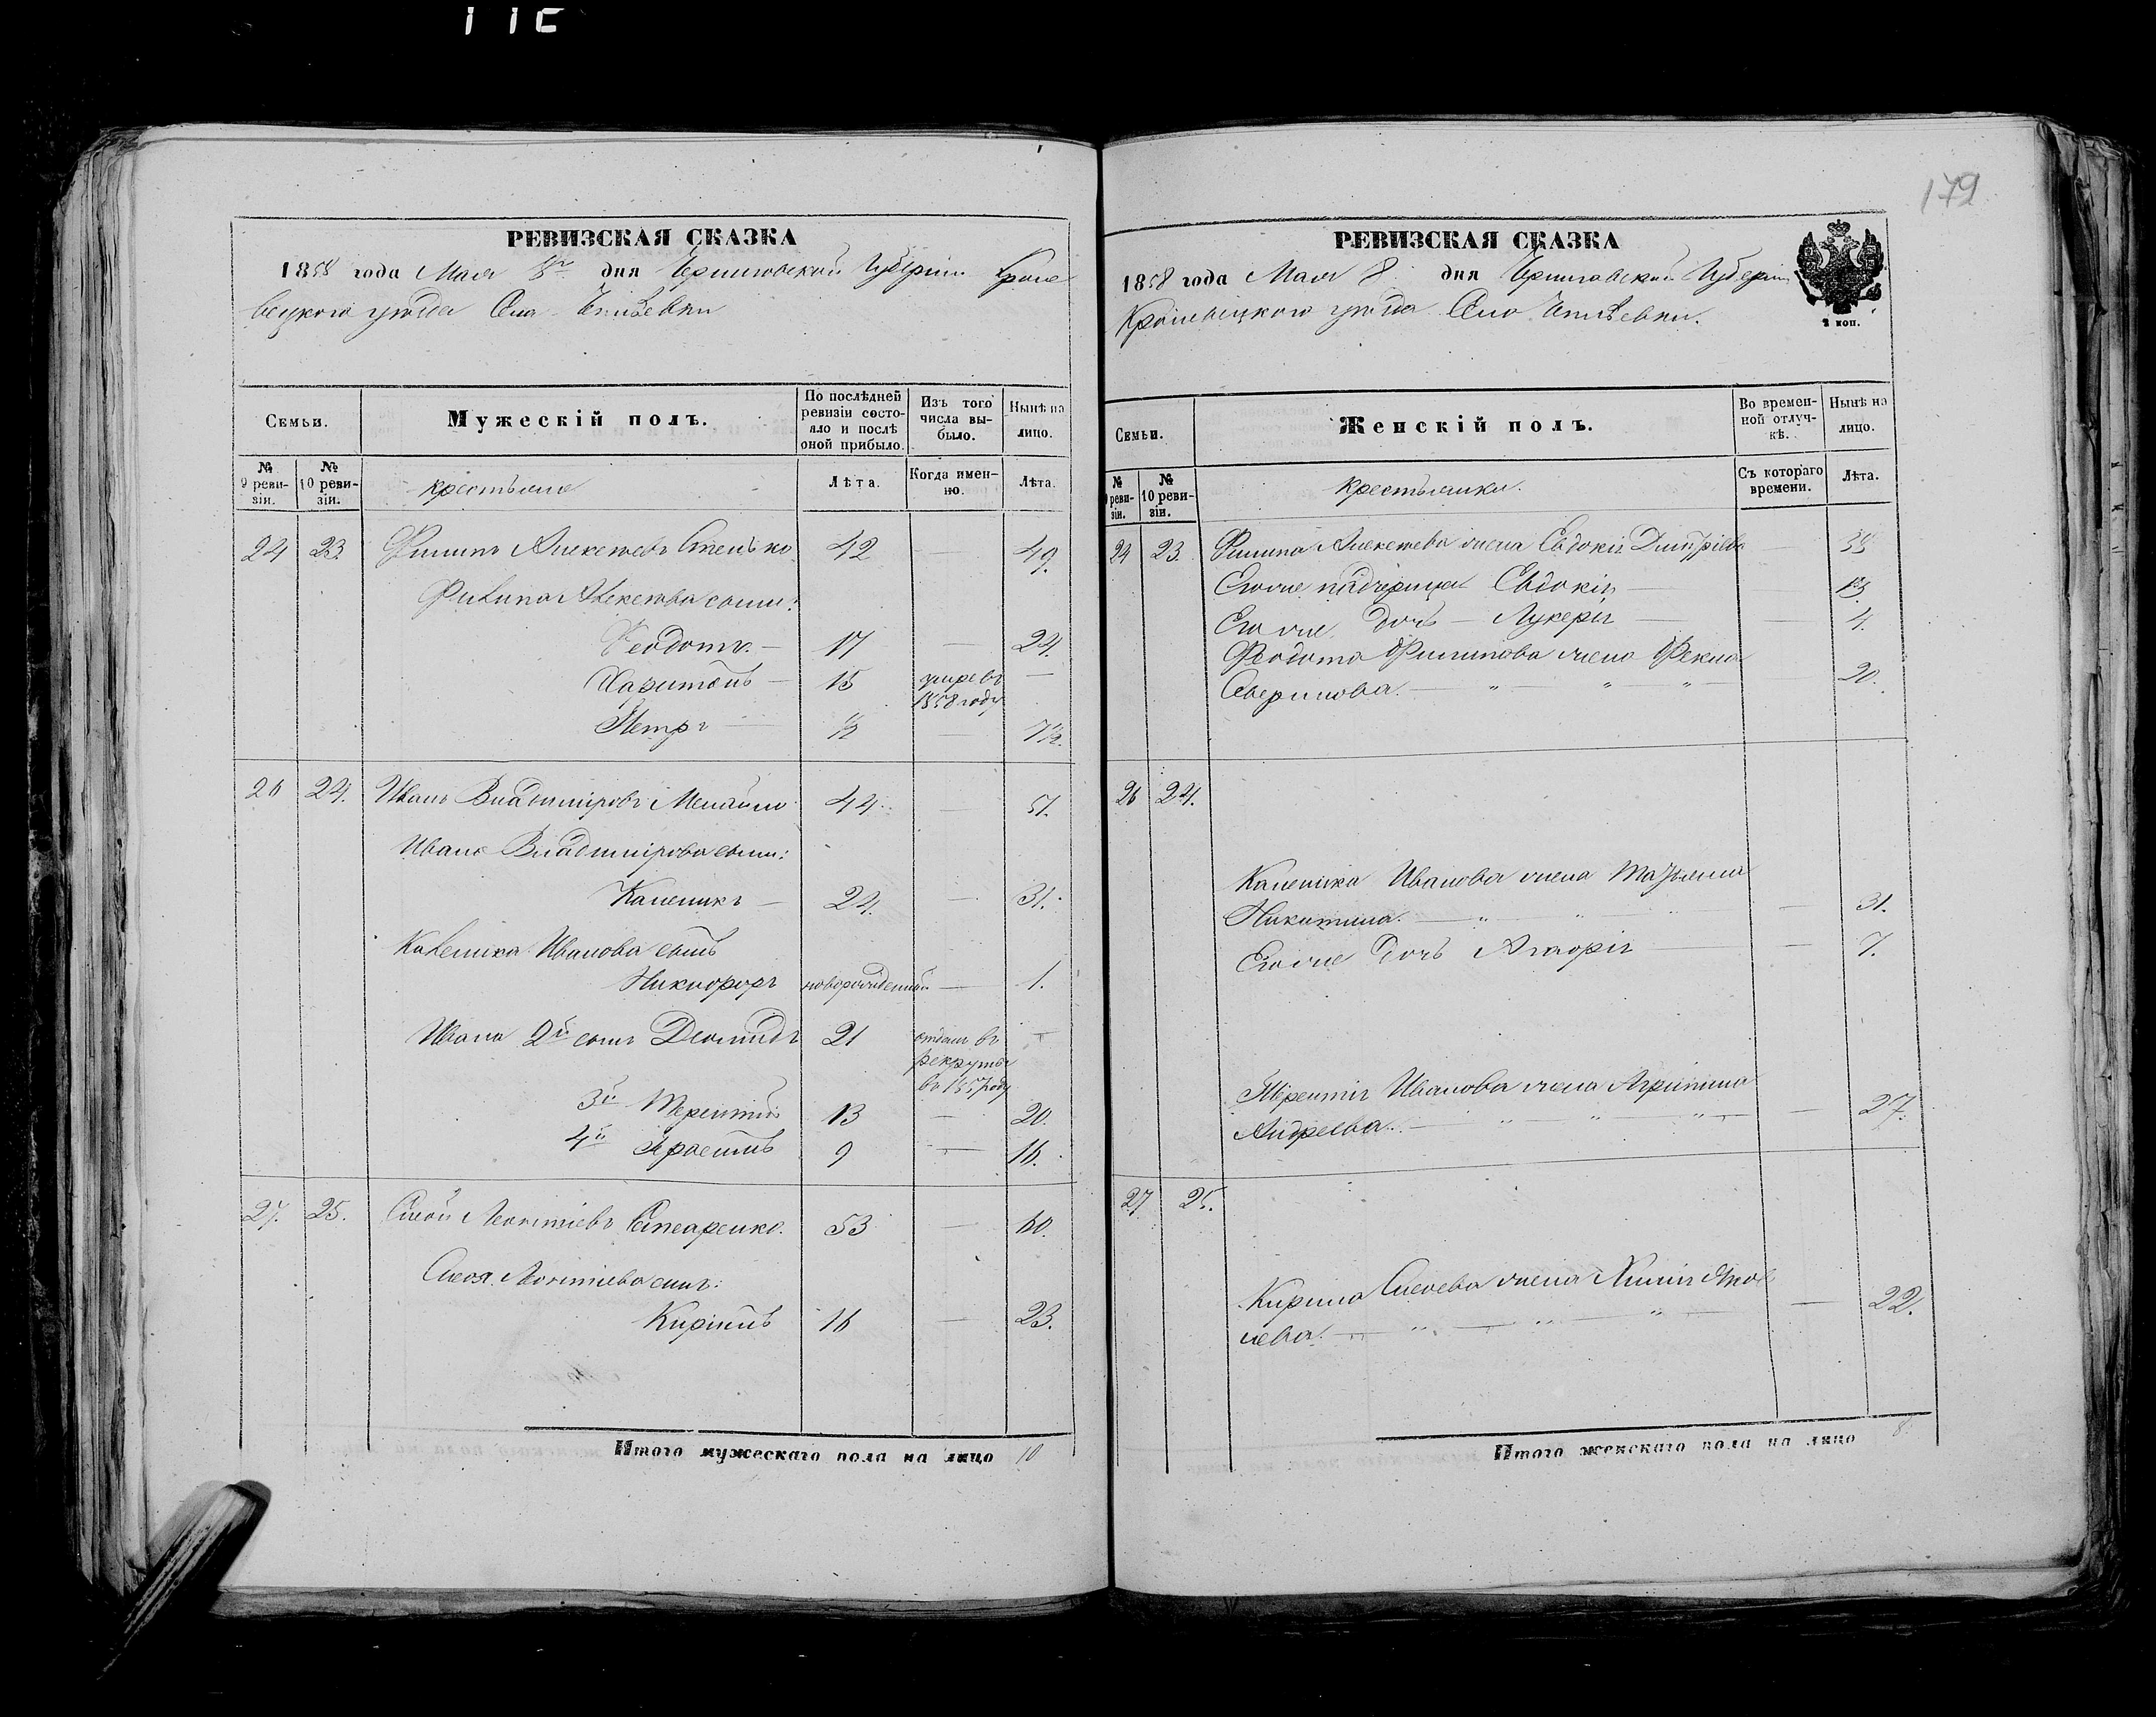 179
РЕВИЗСКАЯ СКАЗКА
1858 года Мая 8го дня Черниговской Губерніи Кроле
вецкаго уѣзда Села
Семьи.
Мужескій полъ.
По послѣдней ревизіи состо-
яло и послѣ
оной прибыло.
Изъ того
числа вы-
было.
Нынѣ на
лицо.
№
9 реви-
зіи.
№
10 реви-
зіи.
крестьяне
Лѣта.
Когда имен-
но.
Лѣта.
24 23. Филипъ Алексѣевъ 42 — 49.
Филипа Алексѣева сыны:
Феодотъ — 17 — 24.
Харитонъ — 15 умре въ —
1858 году
Петръ — ½ — 7½.
26 24. Иванъ Владиміровъ 44. — 51.
Ивана Владимірова сыны:
Каленикъ — 24. — 31.
Каленика Иванова сынъ
Никифоръ новорожденный — 1.
Ивана 2й сынъ Деомидъ 21 отданъ въ —
рекруты
въ 1857 году
3й Терентій 13 — 20.
4й 9 — 16.
27. 25. Сысой Леонтіевъ 53 — 60.
Сысоя Леонтіева сынъ:
Кирилъ 16 — 23.
Итого мужескаго пола на лицо 10
РЕВИЗСКАЯ СКАЗКА
1858 года Мая 8 дня Черниговской Губерніи
Кролевецкаго уѣзда Села
2 коп.
Семьи.
Женскій полъ.
Во времен-
ной отлуч-
кѣ.
Нынѣ на
лицо.
№
9 реви-
зіи.
№
10 реви-
зіи.
крестьянки.
Съ котораго
времени.
Лѣта.
24 23. Филипа Алексѣева жена Евдокія Димтріева —
Его же падчерица Евдокія — — 13.
Его же дочь — Лукерія — — 4.
Феодота Филипова жена Фекла
— " — " — " — 20.
26 24.
Каленика Иванова жена Татьяна
Никитина. — " " " — 31.
Его же дочь — — 7.
Терентія Иванова жена Агрипина
Андреева. — " — " — " — — 27.
27 25.
Кирила Сысоева жена Яков
лева. — " — " — " — — 22.
Итого женскаго пола на лицо 8